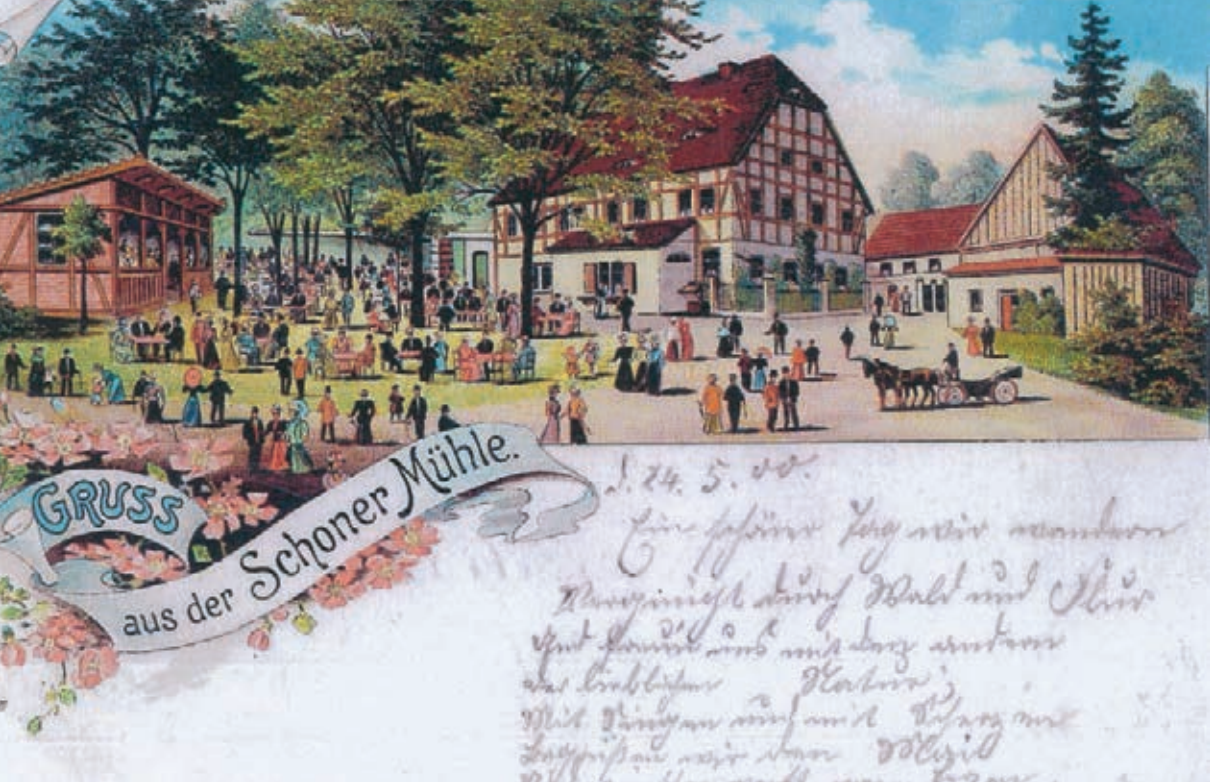 GRUSS
aus der Schoner Mühle.
d. 24. 5. 00.
Ein schöner Tag wir wandern
Vergnügt durch Wald und Flur
Und freun uns mit den andern
der lieblichen Natur;
Mit Singen und mit Scherzen
begrüßen wir den